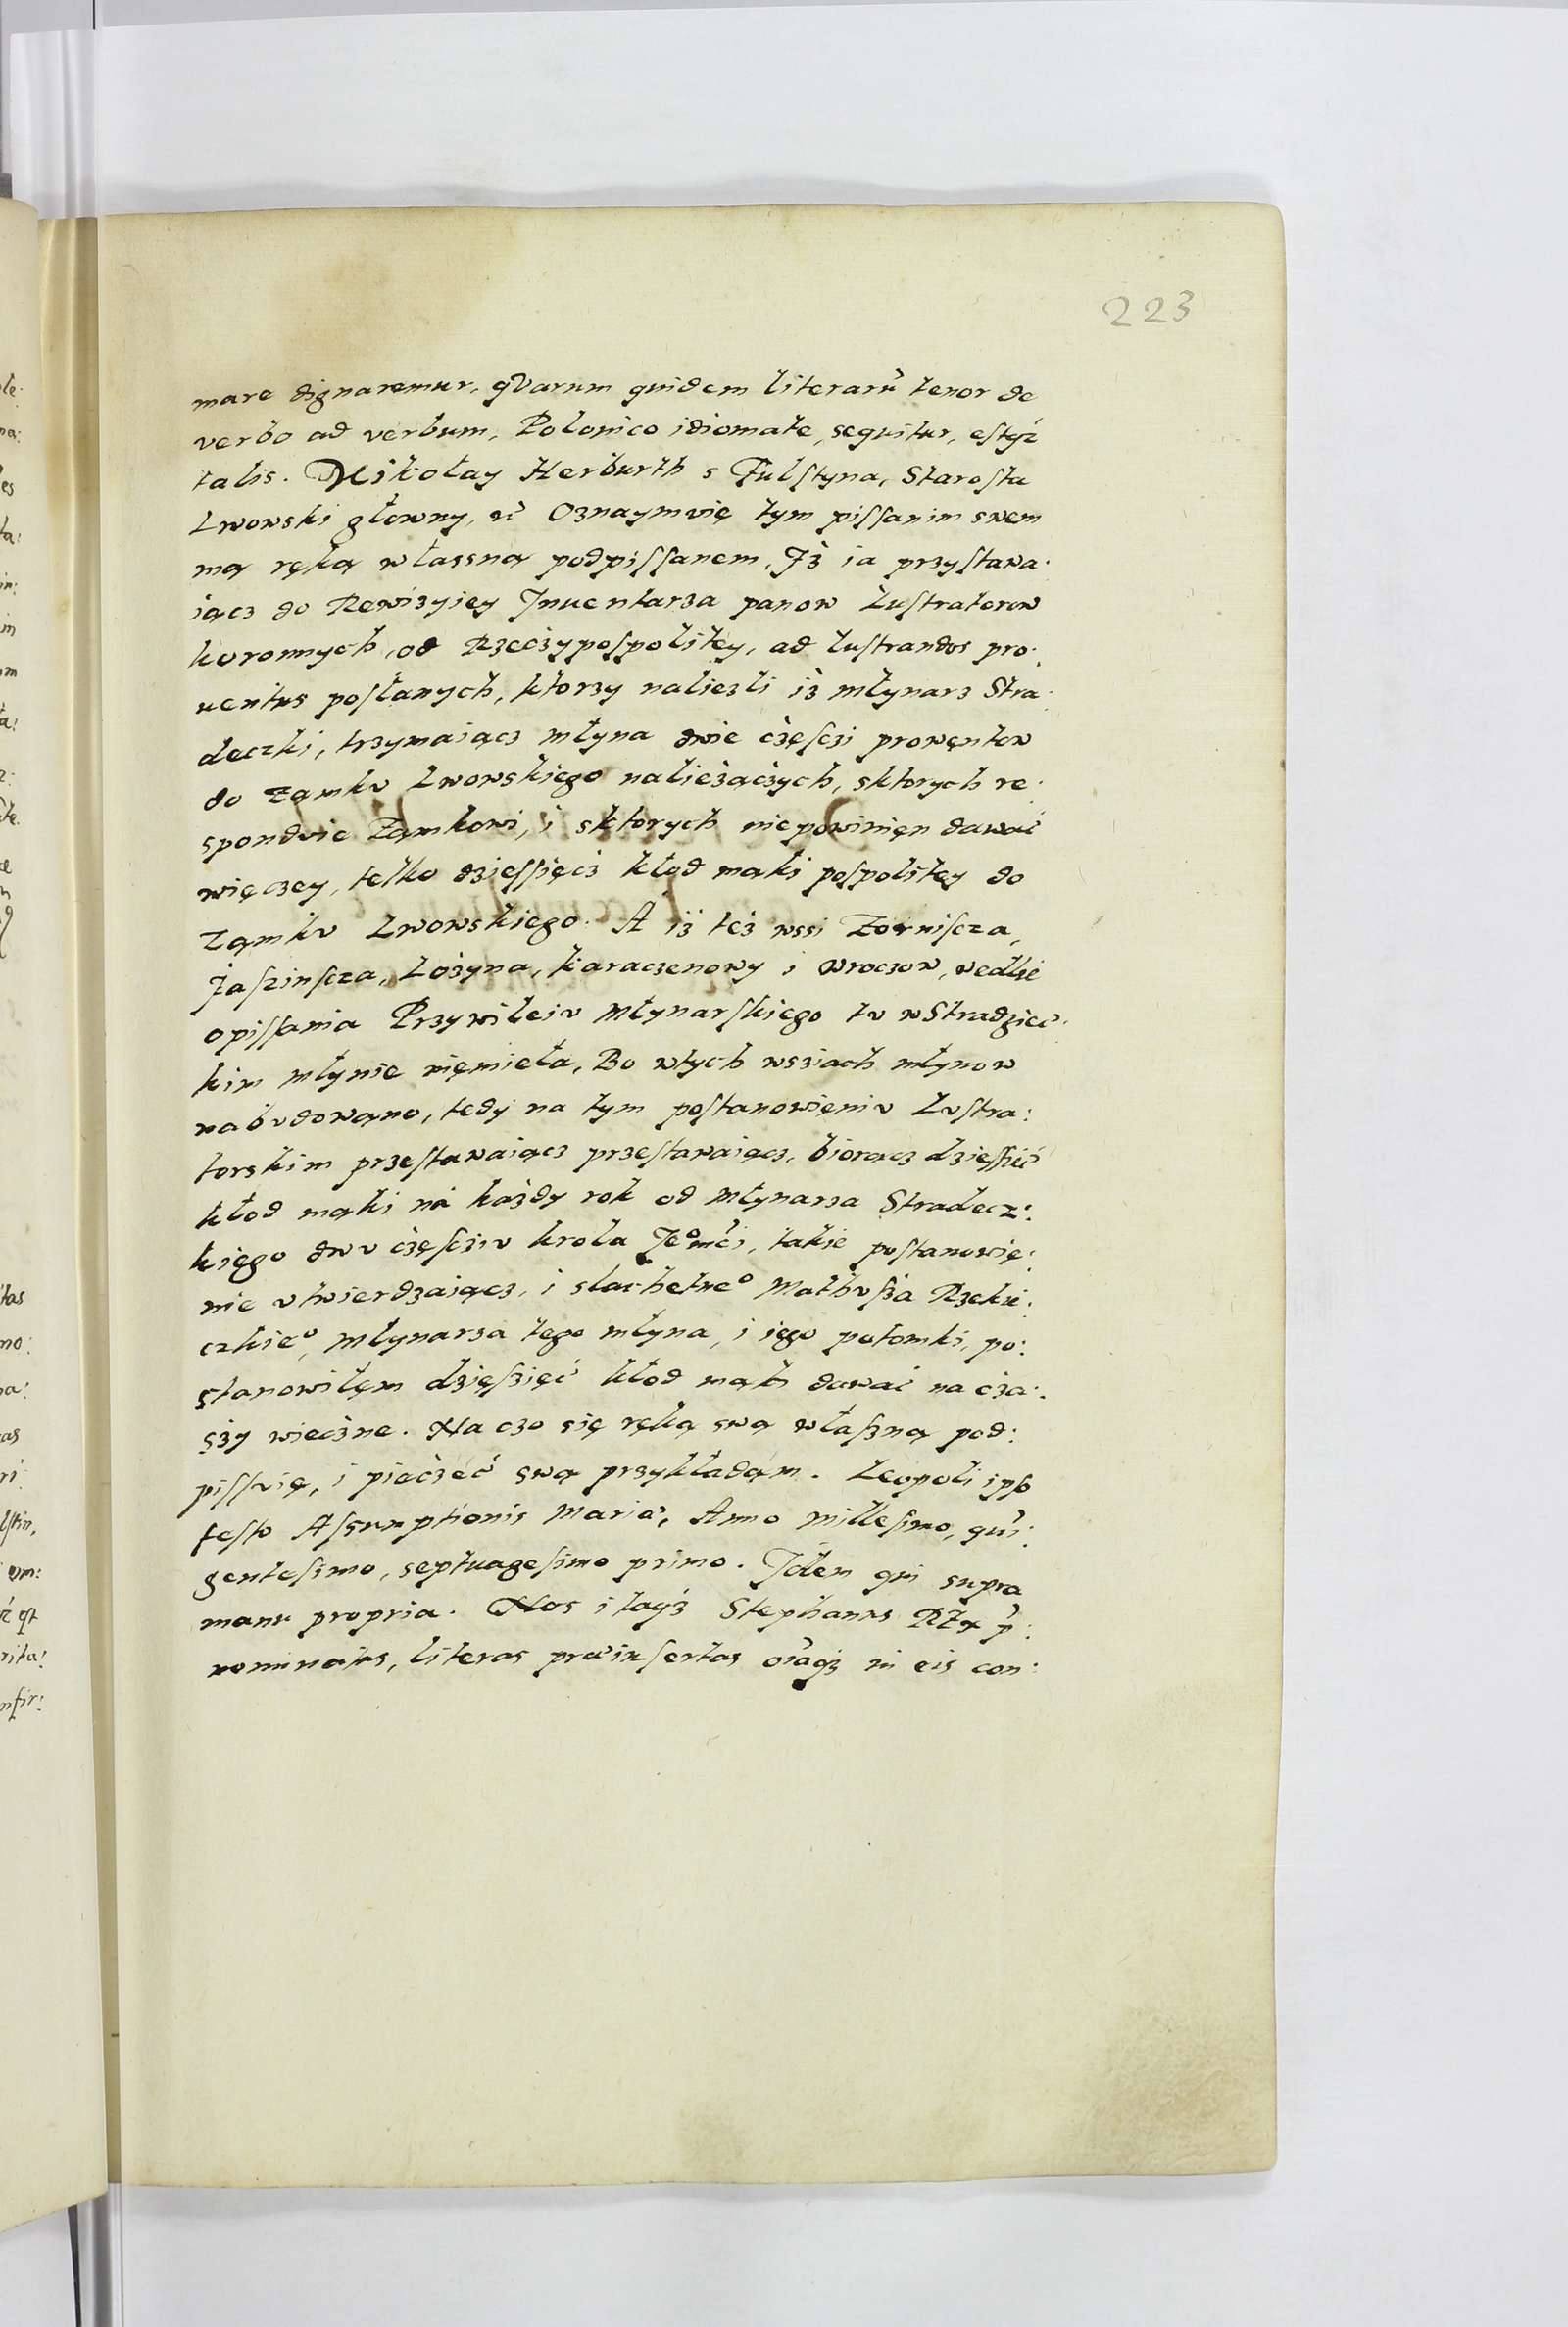 223
mare dignaremur, qvarum quidem literarũ tenor de
verbo ad verbum, Polonico idiomate, sequitur, estq́z
talis. Mikołay Herburth s Fulſtyna, Staroſta
Lwowski głowny, &c̃ Oznaymvię tym piſſanim swem
mą ręką własſną podpiſſanem, Jż ia przyſtawa:
iącz do Rewizyiey Jnuentarza panow Luſtratorow
koronnych, od Rzeczypoſpolitey, ad luſtrandos pro:
uentus poſłanych, ktorzy nalieźli iż młynarz Stra:
deczki, trzymaiącz młyna dwie częſczi prowęntow
do Ząmkv Lwowskiego należączych, sktorych re:
spondvie Ząmkowi, i sktorych niepowinięn dawać
więczey, telko dzieſſięcż kłod mąki poſpolitey do
Ząmkv Lwowskiego. A iż też wssi Zorniſcza,
Jaſzinſcza, Łożyna, karaczenowy i wroczow, wedlie
opiſſania Przywileiv Młynarſkiego tv wStradziec:
kim młynie niemiela, Bo wtych wsziach młynow
nabvdowąno, tedy na tym poſtanowięniv Lvſtra:
torskim przeſtawaiącz przeſtawaiącz, biorącz dzieſſiec̃
kłod mąki ná każdy rok od Młynarza Stradecz:
kięgo dwv częſcziv krola Jeo mc̃i, takie poſtanowię:
nie vtwierdzaiącz, i slachetneo Mathvſża Rzekie:
czkieo, Młynarza tego młyna, i iego potomki, po:
stanowiłęm dzięſzięć kłod mąki dawać na cża:
sży wieczne. Na czo się ręką swą własſzną pod:
piſſvię, i pieczęć swą przykładąm. Leopoli ipſo
feſto Aſsumptionis Mariæ, Anno Milleſimo, quĩ:
genteſimo, septuageſimo primo. Jdem qui supra
manu propria. Nos itaq́z Stephanus REx p̃:
nominatus, literas præinſertas oĩaq́z in eis con: